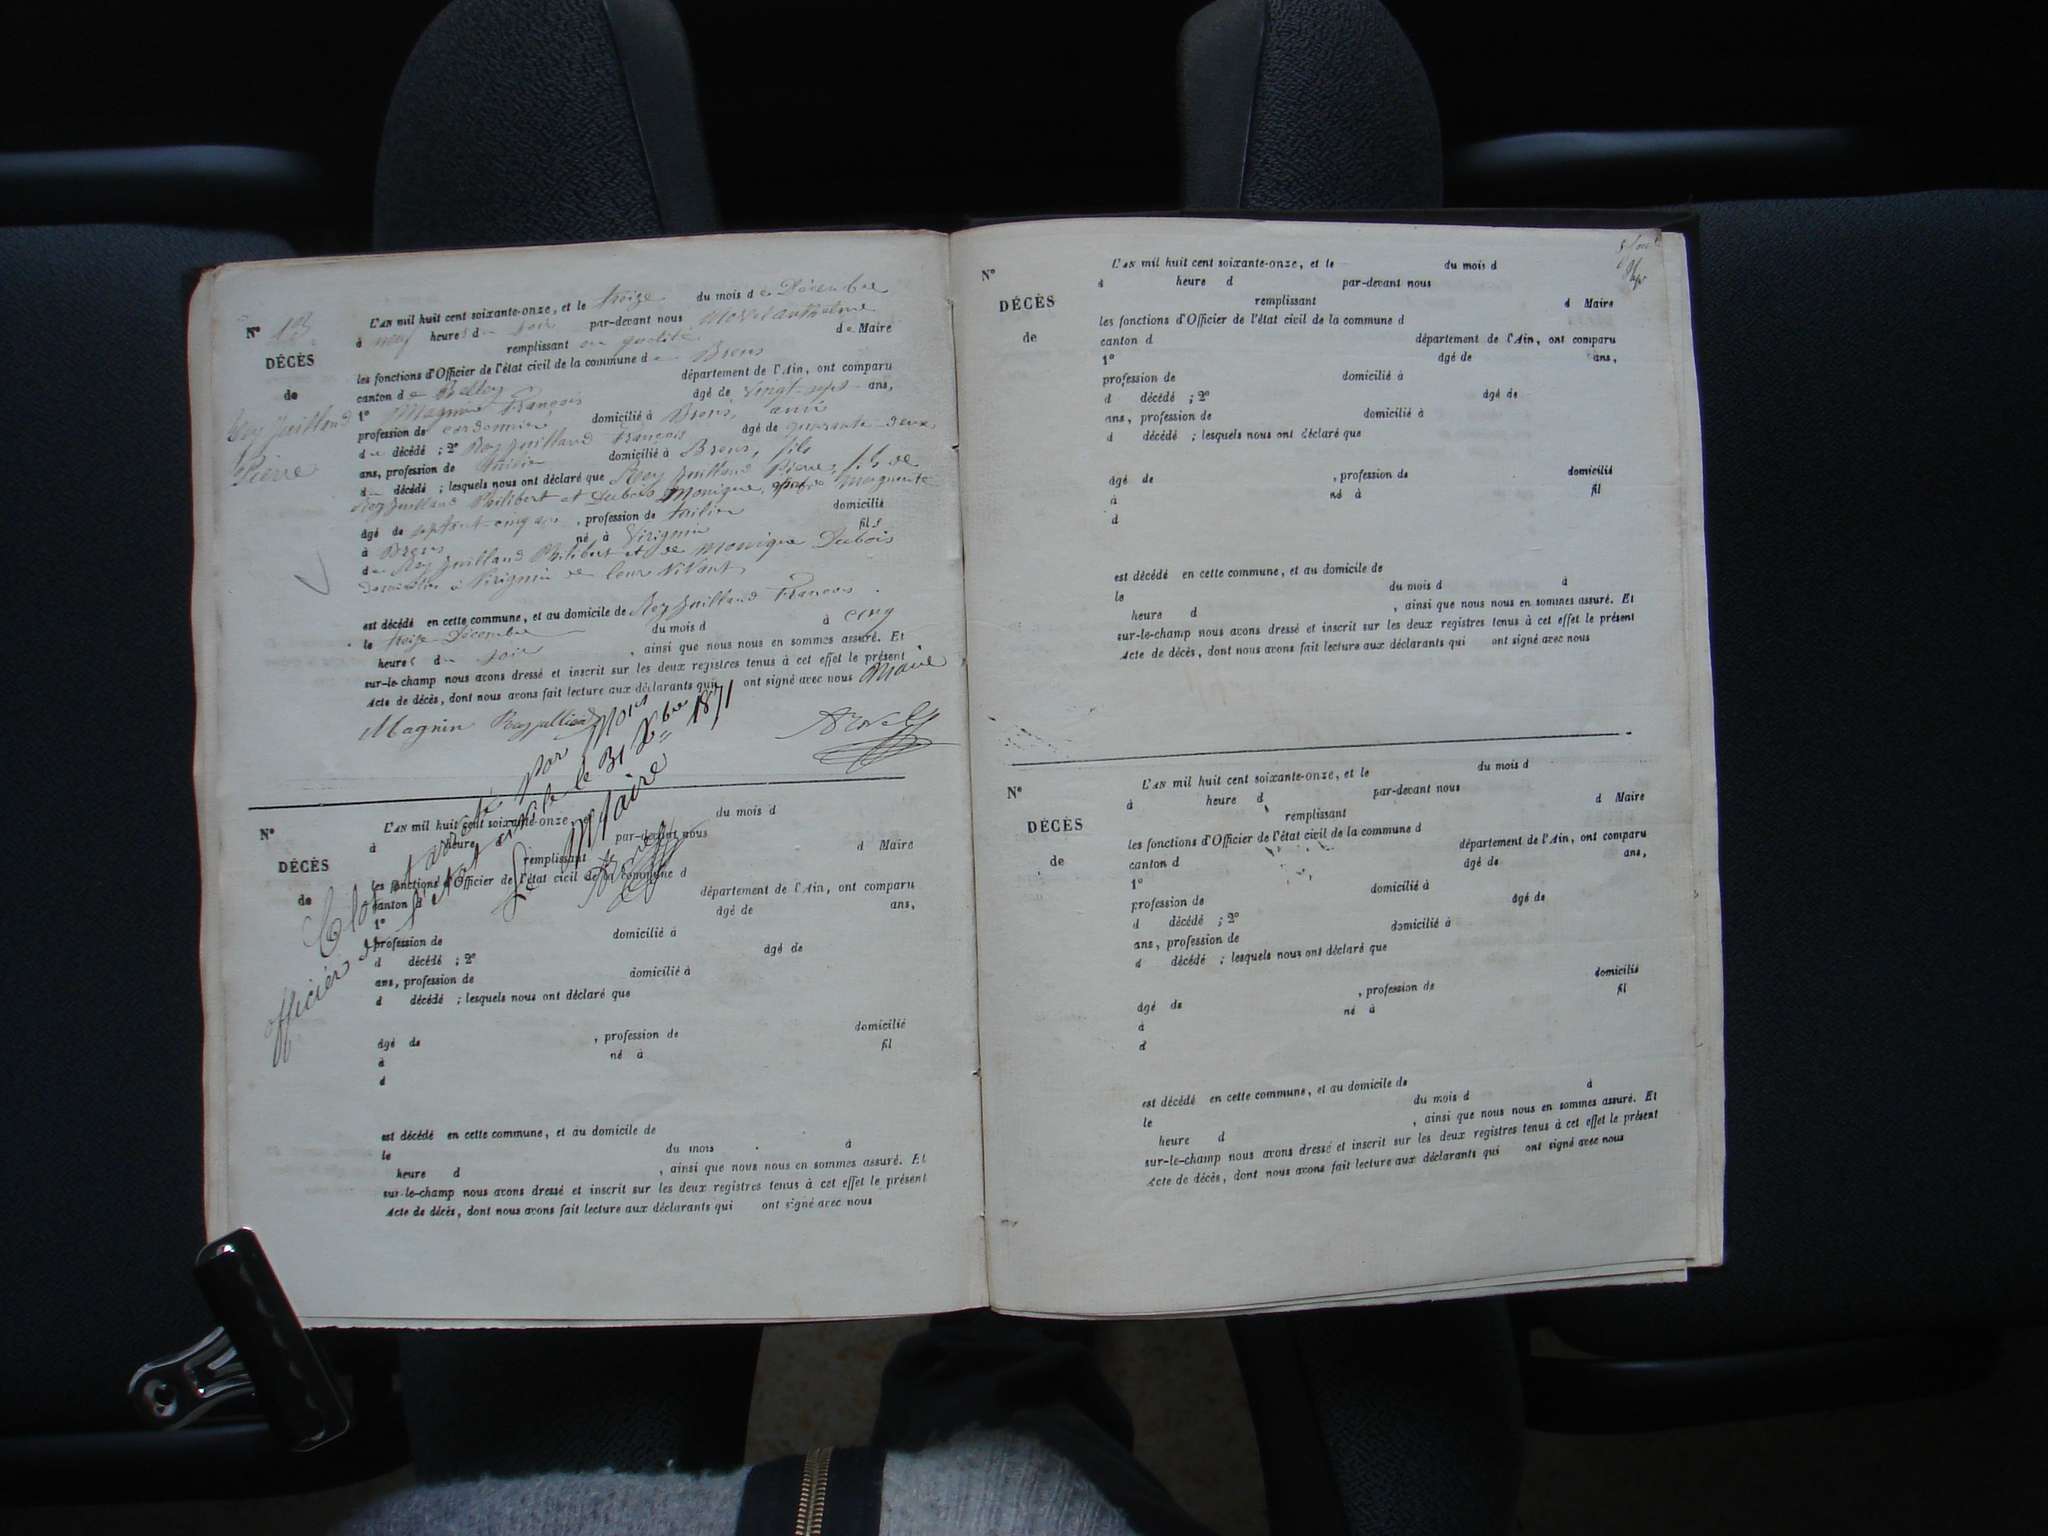 N° 13
DÉCÈS
de
Rey Juilland
Pierre
L'AN mil huit cent soixante-onze, et le treize du mois de Décembre
à neuf heures du soir par-devant nous Morel anthelme
remplissant en qualité de Maire
les fonctions d'Officier de l'état civil de la commune de Brens
canton de Belley département de l'Ain, ont comparu
1° Magnin François âgé de vingt-sept ans,
profession de cordonnier domicilié à Brens, ami
du décédé ; 2° Rey Juilland François âgé de quarante-deux
ans, profession de domicilié à Brens, fils
du décédé ; lesquels nous ont déclaré que Rey Juilland Pierre, fils de
Rey Juilland Philibert et Dubois Monique, Marguerite
âgé de septante-cinq ans, profession de domicilié
à Brens né à Virignin fils
de Rey Juilland Philibert et de Monique Dubois
domiciliés à Virignin de leur vivant
est décédé en cette commune, et au domicile de Rey Juilland François
le treize Décembre du mois d à cinq
heures du soir, ainsi que nous nous en sommes assuré. Et
sur-le-champ nous avons dressé et inscrit sur les deux registres tenus à cet effet le présent
Acte de décès, dont nous avons fait lecture aux déclarants qui ont signé avec nous Maire
Magnin
Clos et arrêté par nous
officier de l'état civil le 31 Xbre 1871
Le Maire
N°
DÉCÈS
de
L'AN mil huit cent soixante-onze, et le du mois d
à heure par-devant nous
remplissant d Maire
les fonctions d'Officier de l'état civil de la commune d
canton d département de l'Ain, ont comparu
1° âgé de ans,
profession de domicilié à
d décédé ; 2° âgé de
ans, profession de domicilié à
d décédé ; lesquels nous ont déclaré que
âgé de , profession de domicilié
à né à fil
d
est décédé en cette commune, et au domicile de
le du mois à
heure d , ainsi que nous nous en sommes assuré. Et
sur-le-champ nous avons dressé et inscrit sur les deux registres tenus à cet effet le présent
Acte de décès, dont nous avons fait lecture aux déclarants qui ont signé avec nous
N°
DÉCÈS
de
L'AN mil huit cent soixante-onze, et le du mois d
à heure d par-devant nous
remplissant d Maire
les fonctions d'Officier de l'état civil de la commune d
canton d département de l'Ain, ont comparu
1° âgé de ans,
profession de domicilié à
d décédé ; 2° âgé de
ans, profession de domicilié à
d décédé ; lesquels nous ont déclaré que
âgé de , profession de domicilié
à né à fil
d
est décédé en cette commune, et au domicile de
le du mois d à
heure d , ainsi que nous nous en sommes assuré. Et
sur-le-champ nous avons dressé et inscrit sur les deux registres tenus à cet effet le présent
Acte de décès, dont nous avons fait lecture aux déclarants qui ont signé avec nous
N°
DÉCÈS
de
L'AN mil huit cent soixante-onze, et le du mois d
à heure d par-devant nous
remplissant d Maire
les fonctions d'Officier de l'état civil de la commune d
canton d département de l'Ain, ont comparu
1° âgé de ans,
profession de domicilié à
d décédé ; 2° âgé de
ans, profession de domicilié à
d décédé ; lesquels nous ont déclaré que
âgé de , profession de domicilié
à né à fil
d
est décédé en cette commune, et au domicile de
le du mois d à
heure d , ainsi que nous nous en sommes assuré. Et
sur-le-champ nous avons dressé et inscrit sur les deux registres tenus à cet effet le présent
Acte de décès, dont nous avons fait lecture aux déclarants qui ont signé avec nous